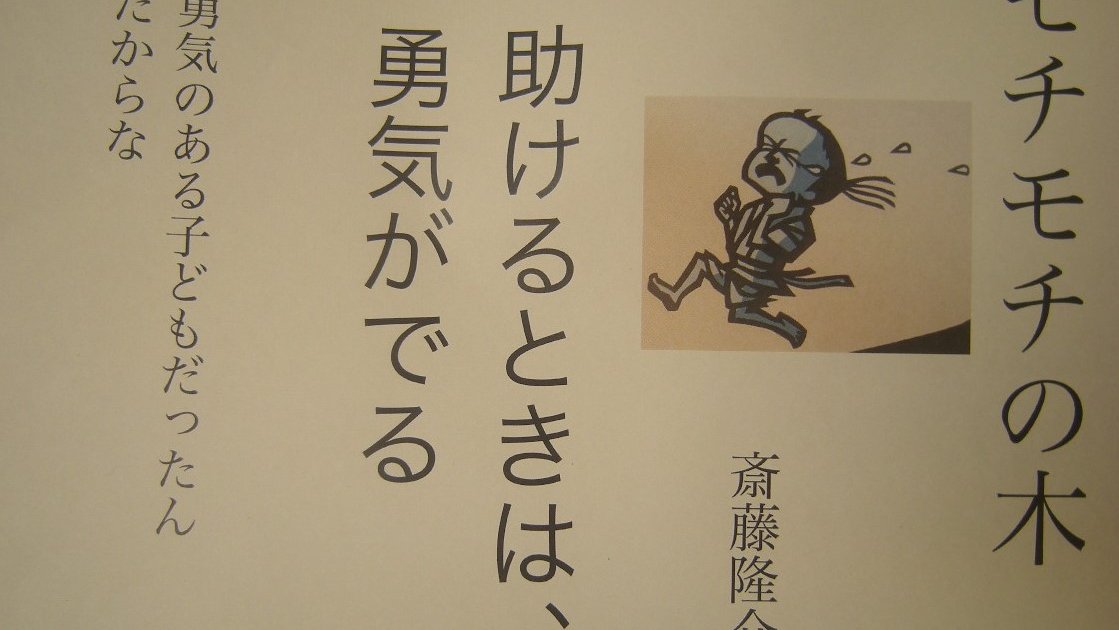 モチモチの木
斎藤隆介
助けるときは、
勇気がでる
勇気のある子どもだったん
だからな